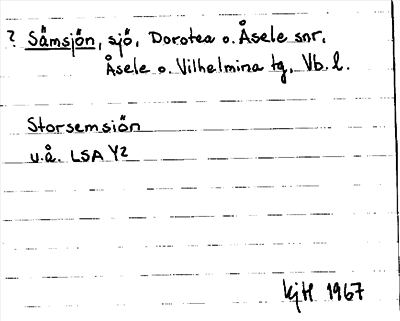 ? Sämsjön, sjö, Dorotea o. Åsele snr,
Åsele o. Vilhelmina tg, Vb. l.
Storsemsiön
u.å. LSA Y2
KjH 1967